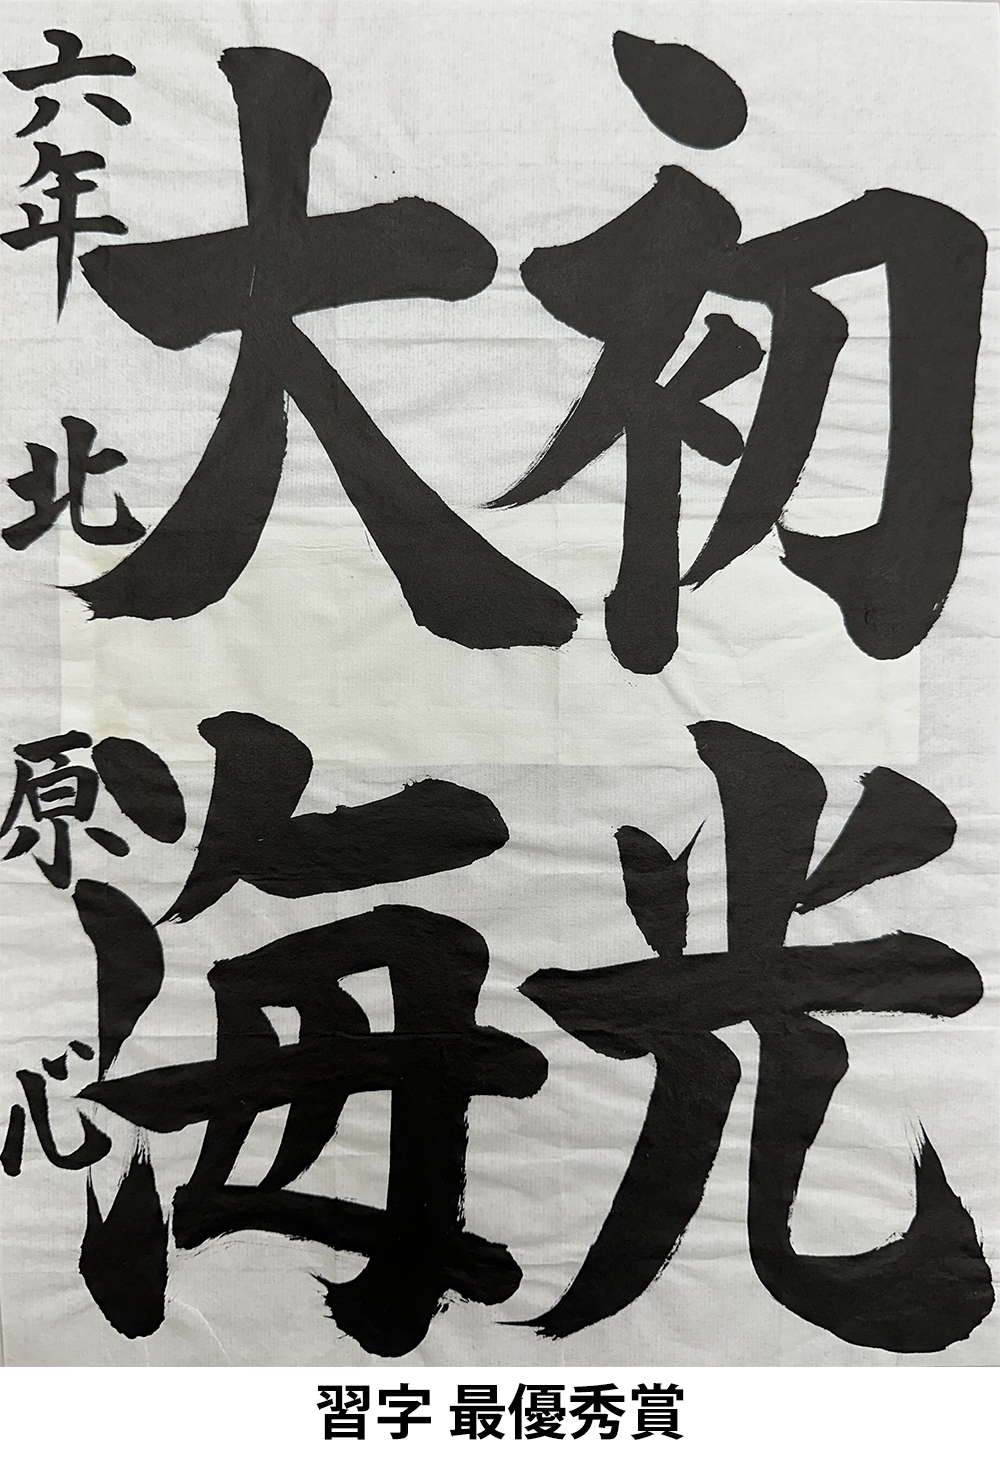 初光
大海
六年 北原心
習字 最優秀賞